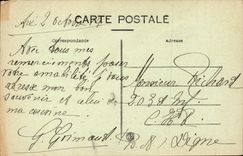 Aix 2 octobre
CARTE POSTALE
Correspondance
Adresse
Avec tous mes
remerciements pour
votre amabilité je vous
adresse mon bon
souvenir et celui de
ma cousine.
G. Grimaud
Monsieur Richard
203e
Digne